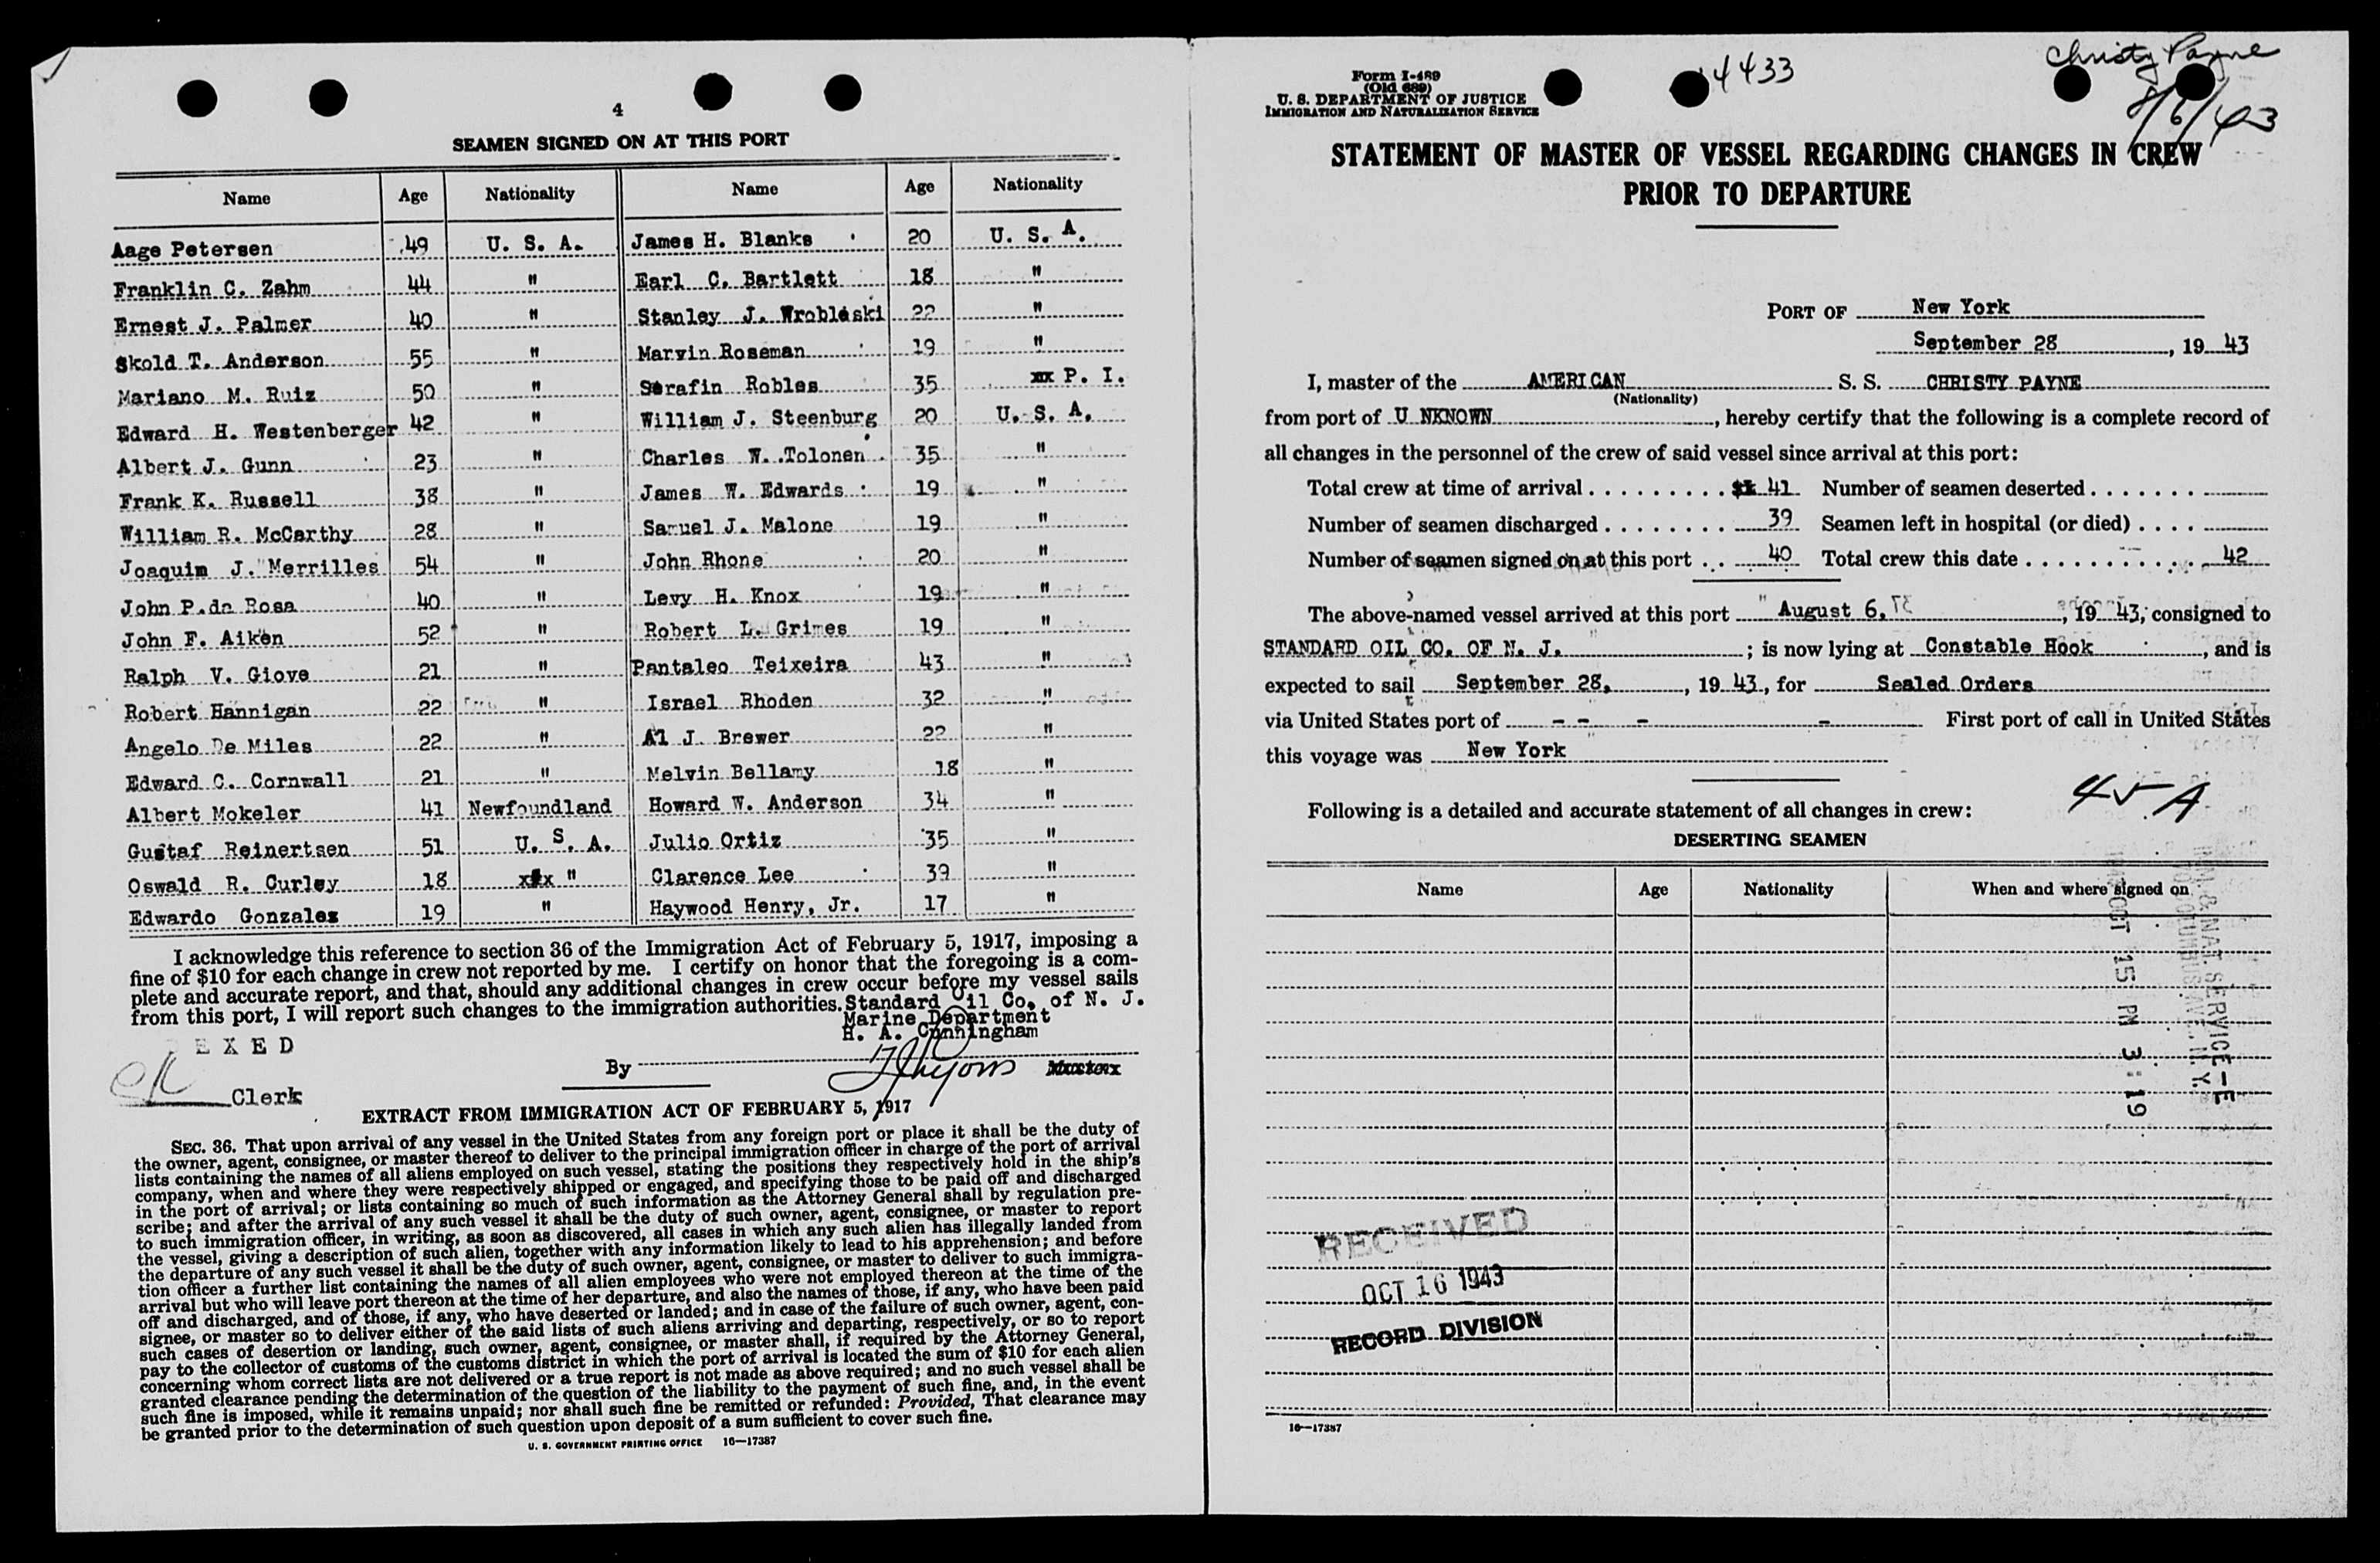 4
SEAMEN SIGNED ON AT THIS PORT
Name Age Nationality Name Age Nationality
Aage Petersen 49 U. S. A. James H. Blanks 20 U. S. A.
Franklin C. Zahm 44 " Earl C. Bartlett 18 "
Ernest J. Palmer 40 " Stanley J. Wrobleski 22 "
Skold T. Anderson 55 " Marvin Roseman 19 "
Mariano M. Ruiz 50 " Serafin Robles 35 xx P. I.
Edward H. Westenberger 42 " William J. Steenburg 20 U. S. A.
Albert J. Gunn 23 " Charles W. Tolonen 35 "
Frank K. Russell 38 " James W. Edwards 19 "
William R. McCarthy 28 " Samuel J. Malone 19 "
Joaquim J. Merrilles 54 " John Rhone 20 "
John P.da Rosa 40 " Levy H. Knox 19 "
John F. Aiken 52 " Robert L. Grimes 19 "
Ralph V. Giove 21 " Pantaleo Teixeira 43 "
Robert Hannigan 22 " Israel Rhoden 32 "
Angelo De Miles 22 " Al J. Brewer 22 "
Edward C. Cornwall 21 " Melvin Bellamy 18 "
Albert Mokeler 41 Newfoundland Howard W. Anderson 34 "
Gustaf Reinertsen 51 U. S. A. Julio Ortiz 35 "
Oswald R. Curley 18 xxx " Clarence Lee 39 "
Edwardo Gonzales 19 " Haywood Henry, Jr. 17 "
I acknowledge this reference to section 36 of the Immigration Act of February 5, 1917, imposing a
fine of $10 for each change in crew not reported by me. I certify on honor that the foregoing is a com-
plete and accurate report, and that, should any additional changes in crew occur before my vessel sails
from this port, I will report such changes to the immigration authorities. Standard Oil Co. of N. J.
Marine Department
H. A. Cunningham
EXED
By
Clerk
EXTRACT FROM IMMIGRATION ACT OF FEBRUARY 5, 1917
SEC. 36. That upon arrival of any vessel in the United States from any foreign port or place it shall be the duty of
the owner, agent, consignee, or master thereof to deliver to the principal immigration officer in charge of the port of arrival
lists containing the names of all aliens employed on such vessel, stating the positions they respectively hold in the ship's
company, when and where they were respectively shipped or engaged, and specifying those to be paid off and discharged
in the port of arrival; or lists containing so much of such information as the Attorney General shall by regulation pre-
scribe; and after the arrival of any such vessel it shall be the duty of such owner, agent, consignee, or master to report
to such immigration officer, in writing, as soon as discovered, all cases in which any such alien has illegally landed from
the vessel, giving a description of such alien, together with any information likely to lead to his apprehension; and before
the departure of any such vessel it shall be the duty of such owner, agent, consignee, or master to deliver to such immigra-
tion officer a further list containing the names of all alien employees who were not employed thereon at the time of the
arrival but who will leave port thereon at the time of her departure, and also the names of those, if any, who have been paid
off and discharged, and of those, if any, who have deserted or landed; and in case of the failure of such owner, agent, con-
signee, or master so to deliver either of the said lists of such aliens arriving and departing, respectively, or so to report
such cases of desertion or landing, such owner, agent, consignee, or master shall, if required by the Attorney General,
pay to the collector of customs of the customs district in which the port of arrival is located the sum of $10 for each alien
concerning whom correct lists are not delivered or a true report is not made as above required; and no such vessel shall be
granted clearance pending the determination of the question of the liability to the payment of such fine, and, in the event
such fine is imposed, while it remains unpaid; nor shall such fine be remitted or refunded: Provided, That clearance may
be granted prior to the determination of such question upon deposit of a sum sufficient to cover such fine.
U. S. GOVERNMENT PRINTING OFFICE 16—17387
Form I-489
(Old 689)
U. S. DEPARTMENT OF JUSTICE
IMMIGRATION AND NATURALIZATION SERVICE
4433
Christy Payne
8/6/43
STATEMENT OF MASTER OF VESSEL REGARDING CHANGES IN CREW
PRIOR TO DEPARTURE
PORT OF New York
September 28, 19 43
I, master of the AMERICAN S. S. CHRISTY PAYNE
(Nationality)
from port of U NKNOWN, hereby certify that the following is a complete record of
all changes in the personnel of the crew of said vessel since arrival at this port:
Total crew at time of arrival . . . . . . . . . 41 Number of seamen deserted . . . . . . .
Number of seamen discharged . . . . . . . . 39 Seamen left in hospital (or died) . . . .
Number of seamen signed on at this port . . 40 Total crew this date . . . . . . . . . . . 42
The above-named vessel arrived at this port August 6, 19 43, consigned to
STANDARD OIL CO. OF N. J. ; is now lying at Constable Hook, and is
expected to sail September 28, 19 43, for Sealed Orders
via United States port of - - - - First port of call in United States
this voyage was New York
45 A
Following is a detailed and accurate statement of all changes in crew:
DESERTING SEAMEN
Name Age Nationality When and where signed on
IMM. & NAT. SERVICE-E
70 COLUMBUS AVE. N. Y.
OCT 15 PM 3:19
RECEIVED
OCT 16 1943
RECORD DIVISION
16—17387